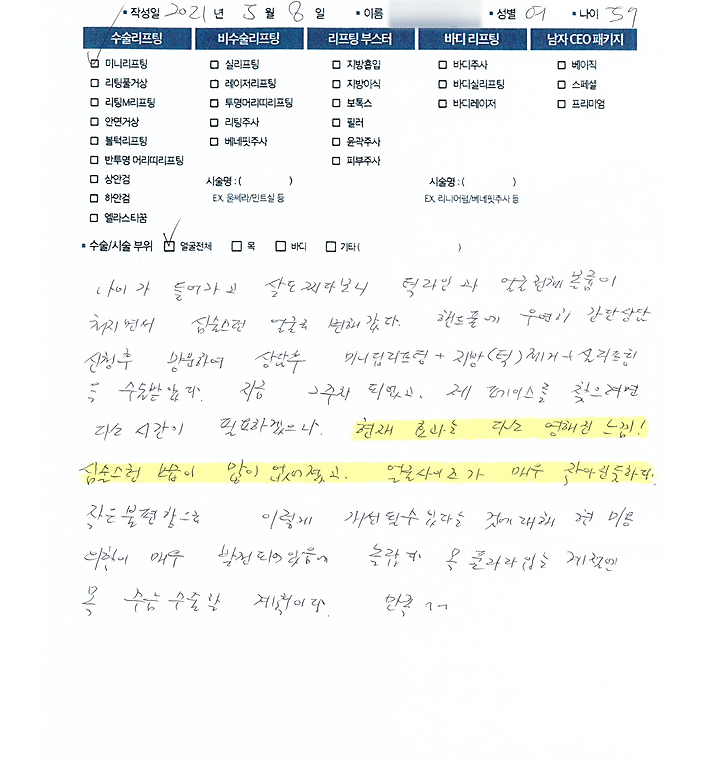 ▪ 작성일 2021 년 5 월 8 일 ▪ 이름 ▪ 성별 여 ▪ 나이 59
수술리프팅 비수술리프팅 리프팅 부스터 바디 리프팅 남자 CEO 패키지
☑ 미니리프팅 □ 실리프팅 □ 지방흡입 □ 바디주사 □ 베이직
□ 리팅풀거상 □ 레이저리프팅 □ 지방이식 □ 바디실리프팅 □ 스페셜
□ 리팅M리프팅 □ 투명머리띠리프팅 □ 보톡스 □ 바디레이저 □ 프리미엄
□ 안면거상 □ 리팅주사 □ 필러
□ 볼턱리프팅 □ 베네핏주사 □ 윤곽주사
□ 반투명 머리띠리프팅 □ 피부주사
□ 상안검 시술명 : ( ) 시술명 : ( )
□ 하안검 EX. 울쎄라/민트실 등 EX. 리니어펌/베네핏주사 등
□ 엘라스티꿈
▪ 수술/시술 부위 ☑ 얼굴전체 □ 목 □ 바디 □ 기타 ( )
나이가 들어가고 살도 찌다보니 턱라인과 얼굴전체 볼륨이
처지면서 심술스런 얼굴로 변해갔다. 핸드폰에 우연히 간단상담
신청후 방문하여 상담후 미니딥리프팅 + 지방(턱)제거 + 실리프팅
등 수술받았다. 지금 2주차 되었고, 제 페이스를 찾으려면
다소 시간이 필요하겠으나. 현재 효과는 다소 영해진 느낌!
심술스런 모습이 많이 없어졌고. 얼굴사이즈가 매우 작아진듯하다.
작은 불편함으로 이렇게 개선될수 있다는 것에 대해 현 미용
의학이 매우 발전되어있음에 놀랍다. 목 폴라라입는 계절엔
목 주름 수술할 계획이다. 만족 ~~